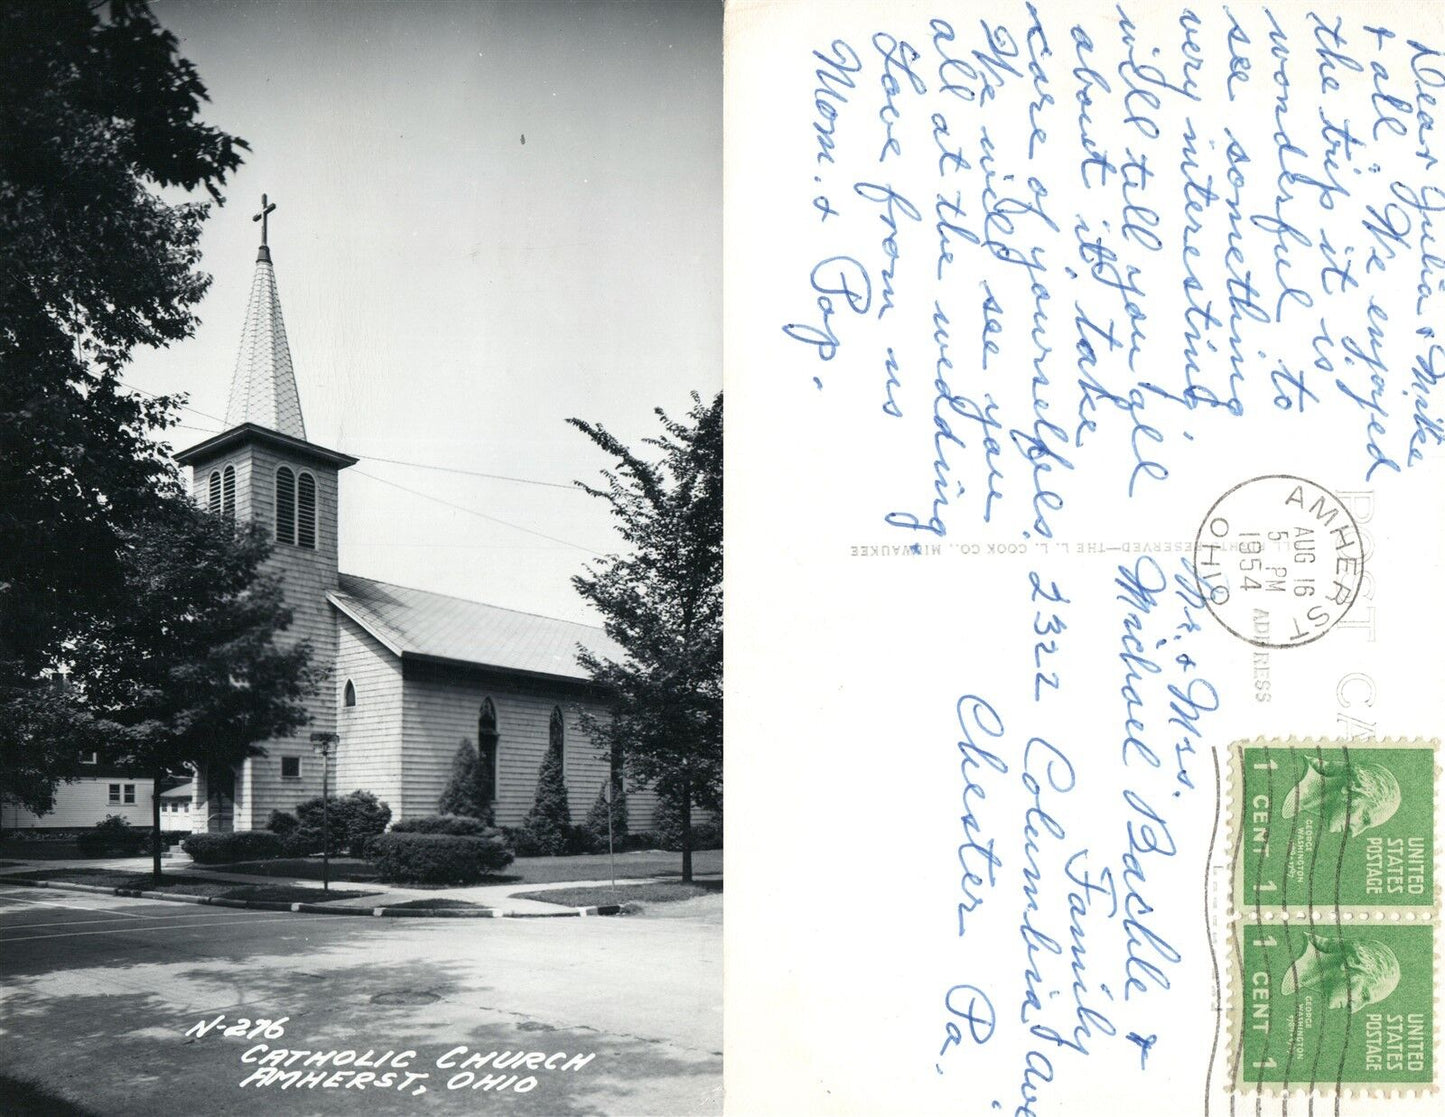 N-276
CATHOLIC CHURCH
AMHERST, OHIO
Dear Julia & Mike
& all: We enjoyed
the trip it is
wonderful to
see something
very interesting
will tell you all
about it, take
care of yourselfs.
We will see you
all at the wedding,
Love from us
Mom. & Pop.
POST CA
ADDRESS
AMHERST
AUG 16
5 PM
1954
OHIO
RESERVED—THE L. L. COOK CO., MILWAUKEE
Mr. & Mrs.
Michael Bashle &
Family
2322 Columbia Ave
Chester Pa.
1 CENT 1
GEORGE
WASHINGTON
UNITED
STATES
POSTAGE
1 CENT 1
GEORGE
WASHINGTON
UNITED
STATES
POSTAGE